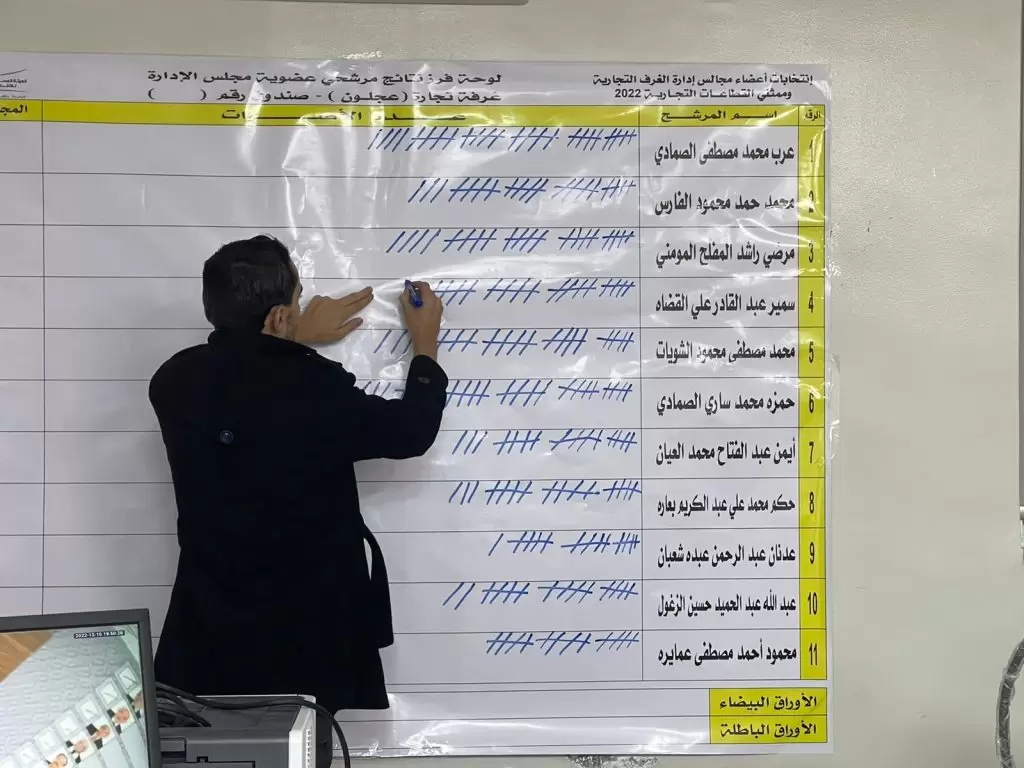 إنتخابات أعضاء مجالس إدارة الغرف التجارية
وممثلي القطاعات التجارية 2022
لوحة فرز نتائج مرشحي عضوية مجلس الإدارة
غرفة تجارة (عجلون) - صندوق رقم ( )
اسم المرشح عدد الأصوات
1 عرب محمد مصطفى الصمادي
2 محمد حمد محمود الفارس
3 مرضي راشد المفلح المومني
4 سمير عبد القادر علي القضاه
5 محمد مصطفى محمود الشويات
6 حمزه محمد ساري الصمادي
7 أيمن عبد الفتاح محمد العيان
8 حكم محمد علي عبد الكريم بعاره
9 عدنان عبد الرحمن عبده شعبان
10 عبد الله عبد الحميد حسين الزغول
11 محمود أحمد مصطفى عمايره
الأوراق البيضاء
الأوراق الباطلة